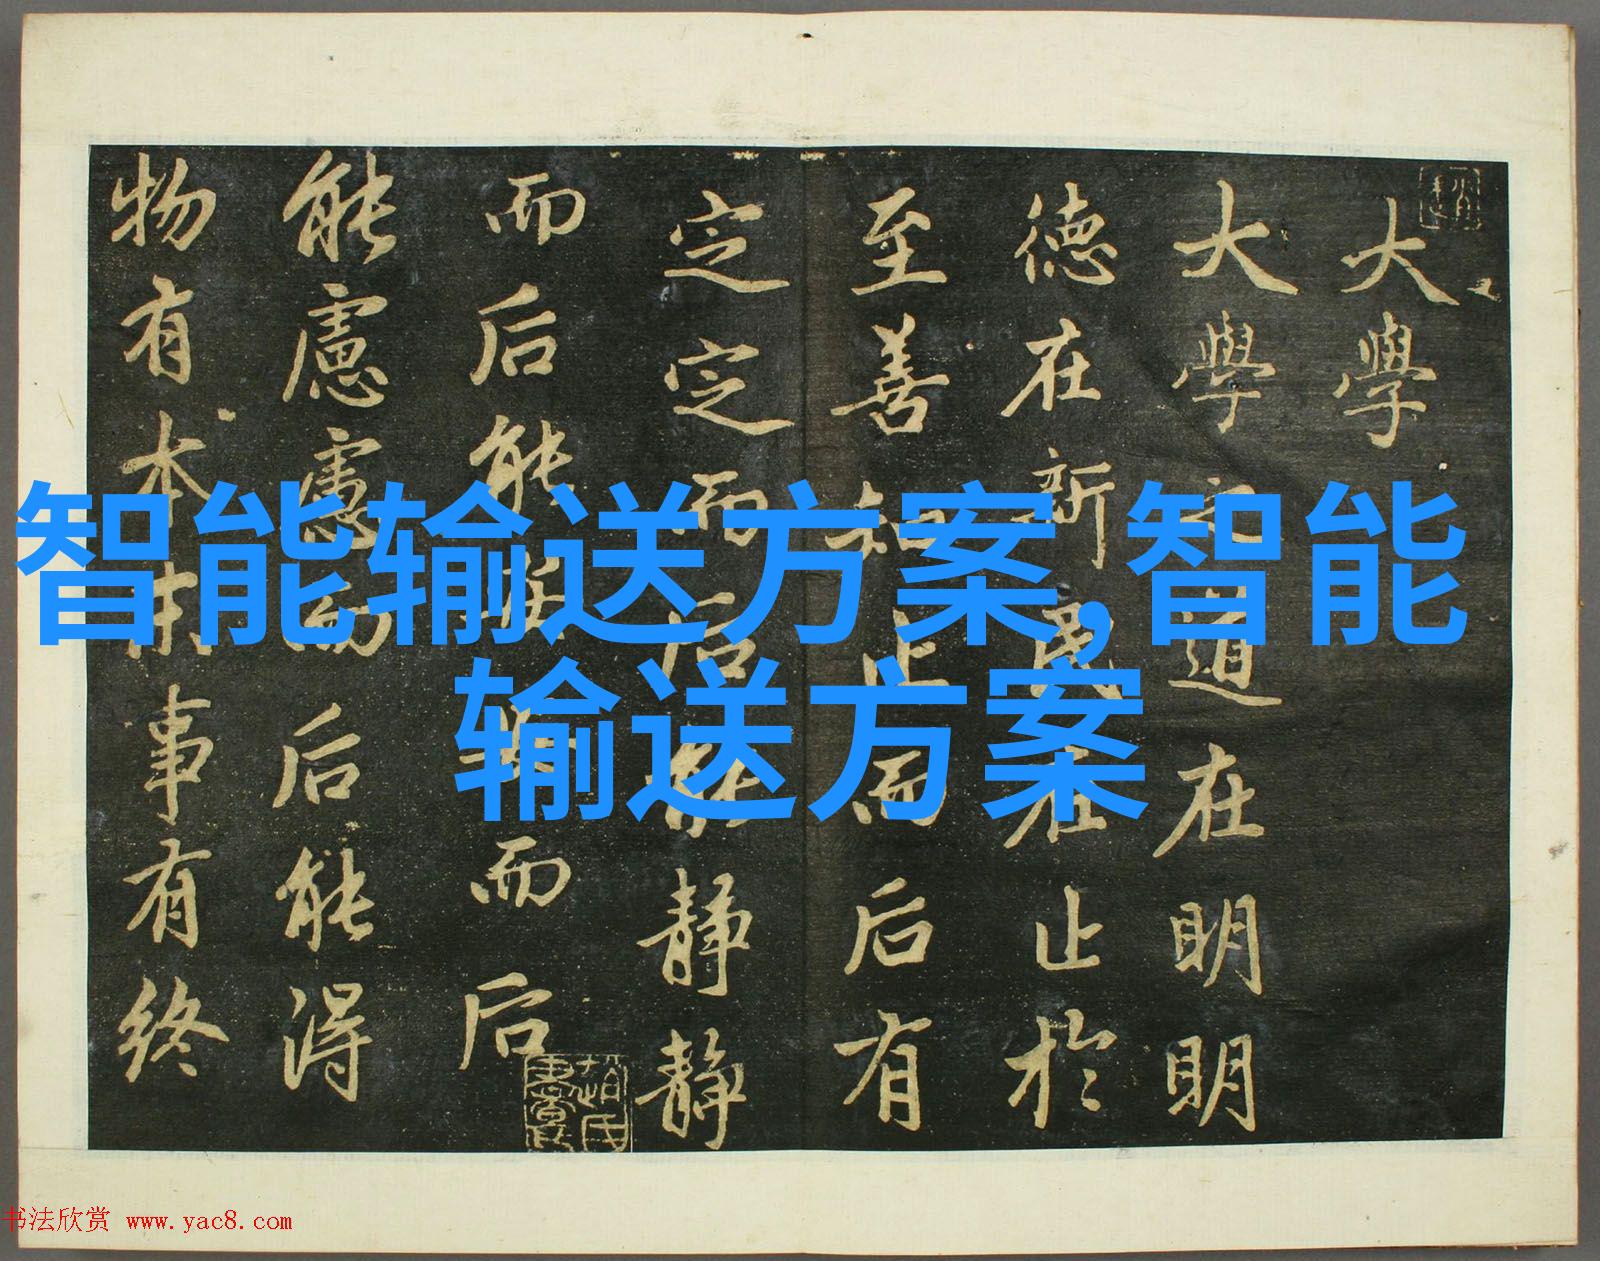 大學
大學之道在明明
德在新民在止於
至善知止而后有
定定而后能靜靜
而后能安安而后
能慮慮而后能得
物有本末事有終
智能输送方案,智能
输送方案
书法欣赏 www.yac8.com